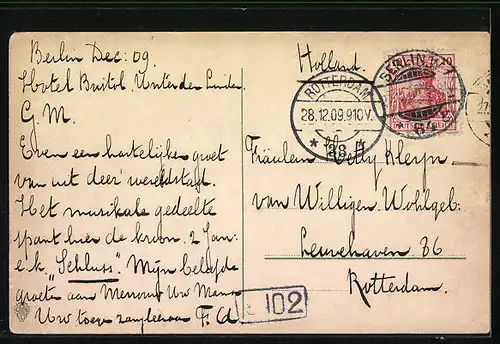 Berlin Dec: 09.
Hotel Bristol Unter den Linden
G. M.
Even een hartelijken groet
van uit deer wereldstadt.
Het musikale gedeelte
spant hier de kroon. 2 Jan:
e.k. "Schluss". Mijn beleefde
groeten aan Mevrouw Uw Mama
Uw toegen zangleeraar
Holland.
ROTTERDAM
28.12.09.9 10V.
BERLIN.W.
Fräulein Willy Kleyn
van Willigen. Wohlgeb:
Leuvehaven 36
Rotterdam.
102